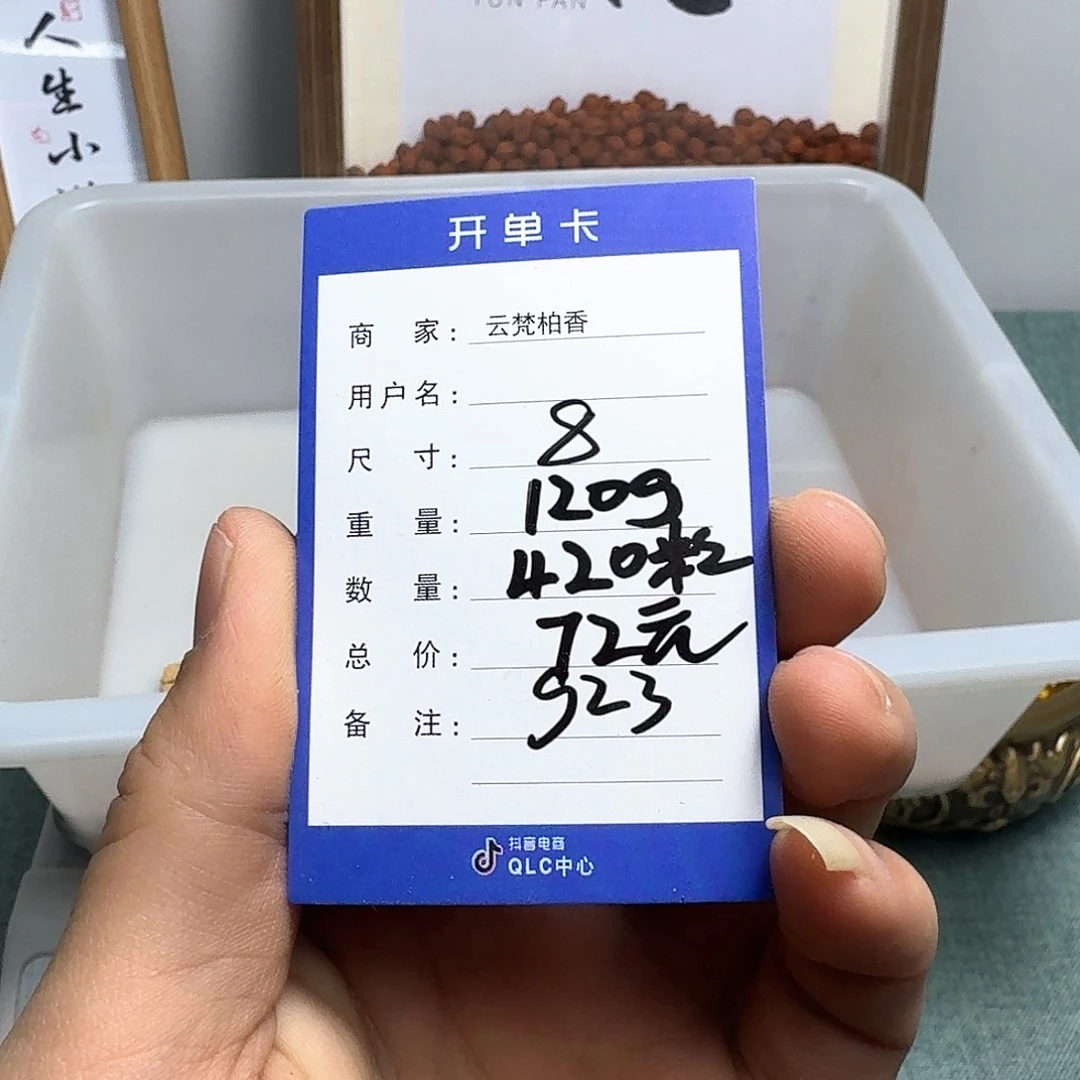 YUN FAN
人生小
开单卡
商家：云梵柏香
用户名：
尺寸：8
重量：120g
数量：420粒
总价：72元
备注：923
抖音电商
QLC中心